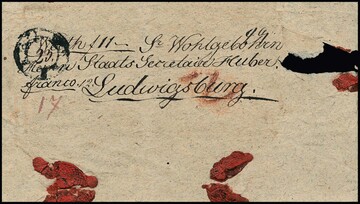 25.
th f 11 — Sr. Wohlgebohrn
Herrn Staats Secretair Huber.
franco
Ludwigsburg.
17